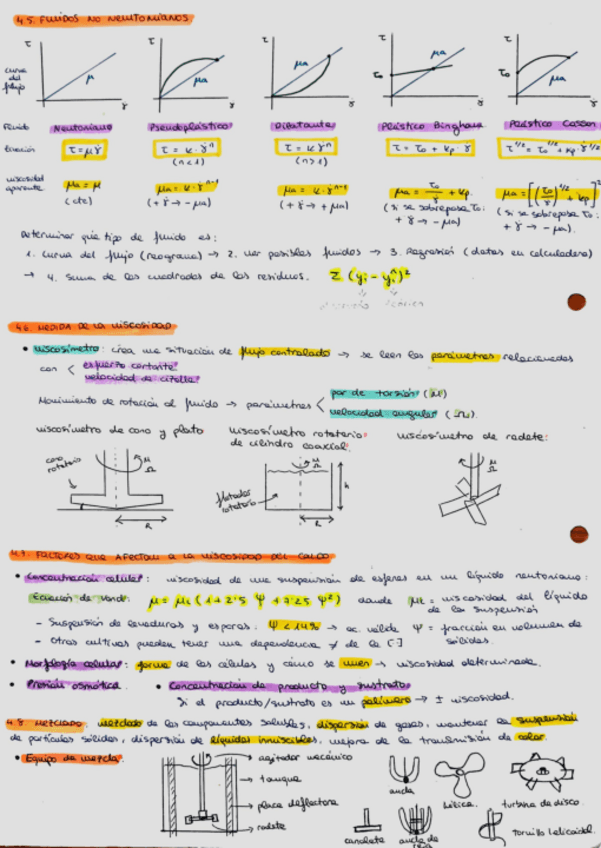 4.5. FLUIDOS NO NEWTONIANOS
τ τ τ τ τ
curva del flujo
μ μa μa τo μa τo μa
γ̇ γ̇ γ̇ γ̇ γ̇
Fluido Newtoniano Pseudoplástico Dilatante Plástico Bingham Plástico Casson
Ecuación τ = μ γ̇ τ = K · γ̇ⁿ τ = K γ̇ⁿ τ = τo + Kp · γ̇ τ^1/2 = τo^1/2 + Kp γ̇^1/2
(n < 1) (n > 1)
viscosidad aparente μa = μ μa = K · γ̇ⁿ⁻¹ μa = K · γ̇ⁿ⁻¹ μa = τo/γ̇ + Kp μa = [(τo/γ̇)^1/2 + Kp]²
(cte) (+ γ̇ → - μa) (+ γ̇ → + μa) (si se sobrepasa τo: (si se sobrepasa τo:
+ γ̇ → - μa) + γ̇ → - μa).
Determinar qué tipo de fluido es:
1. curva del flujo (reograma) → 2. ver posibles fluidos → 3. Regresión (datos en calculadora)
→ 4. Suma de los cuadrados de los residuos. Σ (yi - yi^)²
4.6. MEDIDA DE LA VISCOSIDAD
• viscosímetro: crea una situación de flujo controlado → se leen los parámetros relacionados
con < esfuerzo cortante
velocidad de cizalla
Movimiento de rotación al fluido → parámetros < par de torsión (M)
velocidad angular (Ω).
viscosímetro de cono y plato viscosímetro rotatorio viscosímetro de rodete:
de cilindro coaxial:
cono rotatorio M Ω R
flotador rotatorio M Ω h R
M Ω
4.7. FACTORES QUE AFECTAN A LA VISCOSIDAD DEL CALDO
• Concentración celular: viscosidad de una suspensión de esferas en un líquido newtoniano:
Ecuación de Vand: μ = μL (1 + 2'5 Ψ + 7'25 Ψ²) donde μL = viscosidad del líquido
de la suspensión
- Suspensión de levaduras y esporas: Ψ < 14% → ec. válida Ψ = fracción en volumen de
sólidos.
- Otros cultivos pueden tener una dependencia ≠ de la [·]
• Morfología celular: forma de las células y cómo se unen → viscosidad determinada.
• Presión osmótica. • Concentración de producto y sustrato
Si el producto/sustrato es un polímero → ± viscosidad.
4.8 MEZCLADO: mezclado de los componentes solubles, dispersión de gases, mantener la suspensión
de partículas sólidas, dispersión de líquidos inmiscibles, mejora de la transmisión de calor.
• Equipo de mezcla:
agitador mecánico
tanque
placa deflectora
rodete
ancla
hélica.
turbina de disco.
canalete
ancla de
tornillo helicoidal.